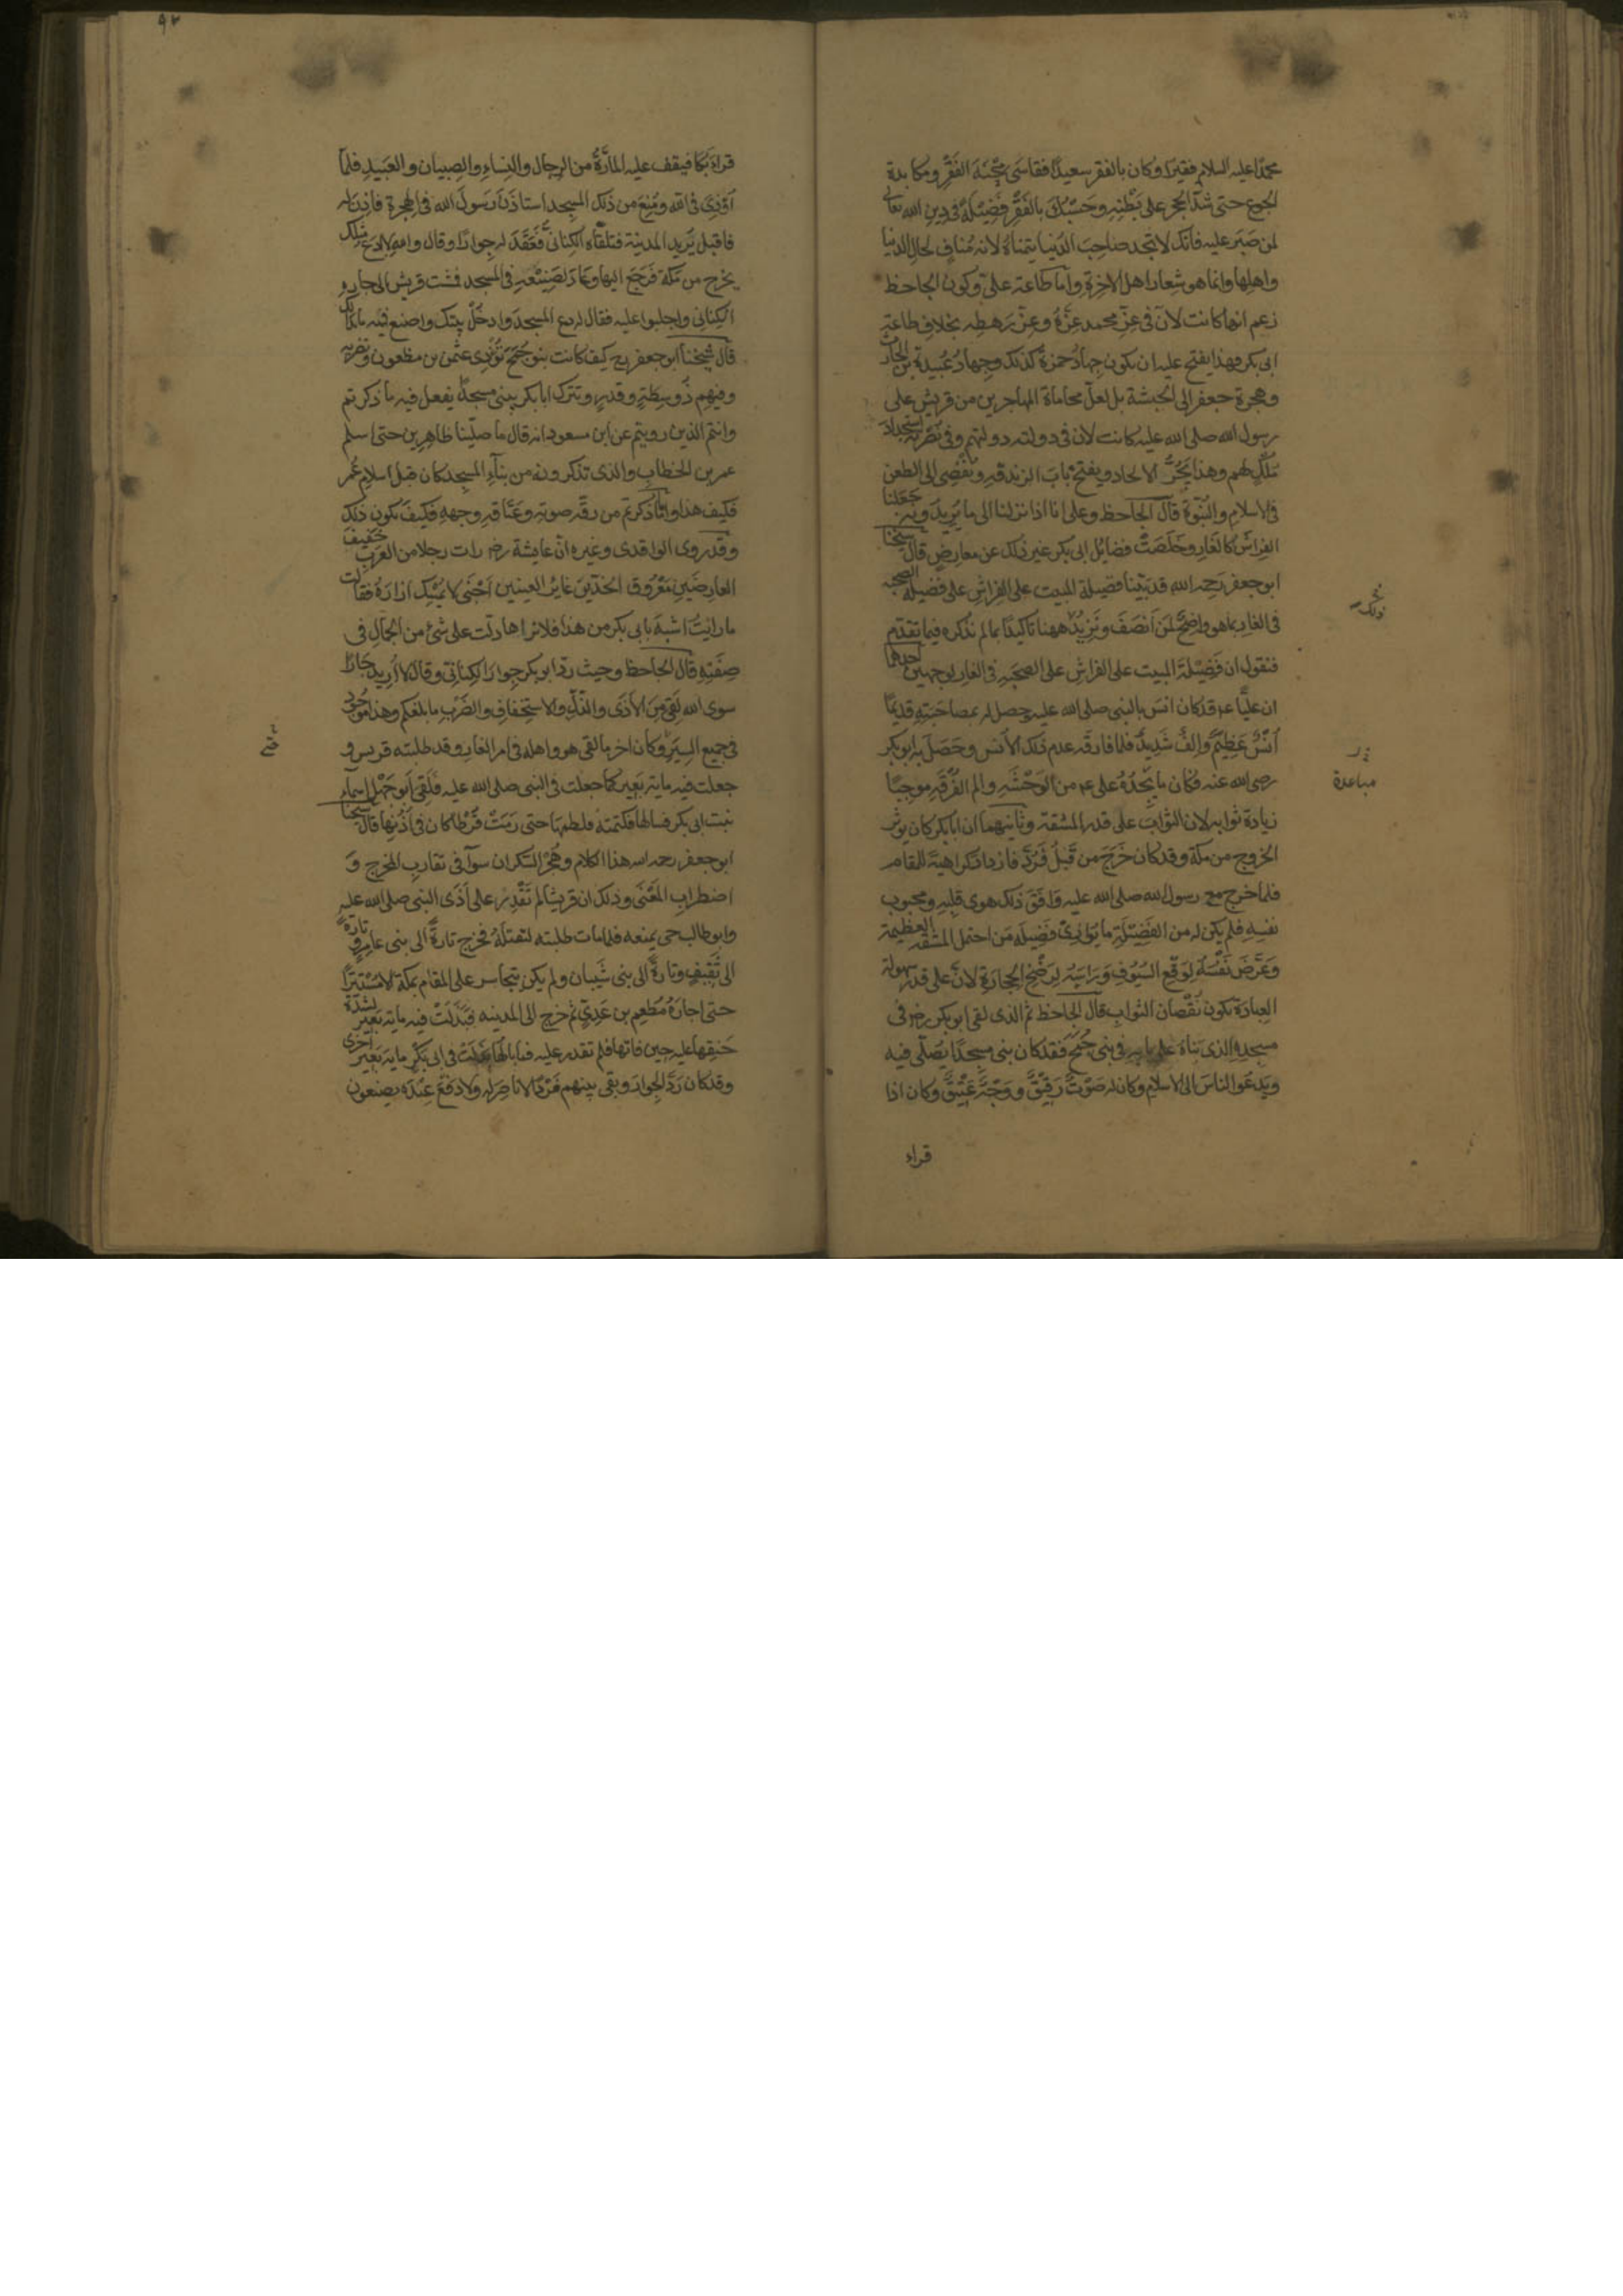 محمدا عليه السلام فقيرا وكان بالفقر سعيدا فقاسى محنة الفقر ومكابدة
الجوع حتى شد الحجر على بطنه وحسبك بالفقر فضيلة في دين الله تعالى
لمن صبر عليه فانك لا تجد صاحب الدنيا يتمناه لانه مناف لحال الدنيا
واهلها وانما هو شعار اهل الاخرة واما طاعة علي وكون الجاحظ
زعم انها كانت لان في عز محمد عزه وعز رهطه بخلاف طاعة
ابى بكر فهذا يفتح عليه ان يكون جهاد حمزة كذلك وجهاد عبيدة بن الحارث
وهجرة جعفر الى الحبشة بل لعل محاماة المهاجرين من قريش على
رسول الله صلى الله عليه كانت لان في دولته دولتهم وفي نصرته استجداد
ملك لهم وهذا يجر الالحاد ويفتح باب الزندقه ويفضي الى الطعن
في الاسلام والنبوة قال الجاحظ وعلى انا اذا نزلنا الى ما يريدونه جعلنا
الفراش كالغار وخلصت فضايل ابى بكر غير ذلك عن معارض قال شيخنا
ابو جعفر رحمه الله قد بينا فضيلة المبيت على الفراش على فضيلة الصحبه
في الغار بما هو واضح لمن انصف ونزيد ههنا تاكيدا بما لم نذكره فيما تقدم
فنقول ان فضيلة المبيت على الفراش على الصحبه في الغار لوجهين احدهما
ان عليا عم قد كان انس بالنبي صلى الله عليه وحصل له بمصاحبته قديما
انس عظيم والف شديد فلما فارقه عدم ذلك الانس وحصل به ابو بكر
رضى الله عنه فكان ما يجده على عم من الوحشه والم الفرقه موجبا
زيادة ثوابه لان الثواب على قدر المشقة وثانيهما ان ابا بكر كان يوثر
الخروج من مكة وقد كان خرج من قبل فرد فازداد كراهية للمقام
فلما خرج مع رسول الله صلى الله عليه وافق ذلك هوى قلبه ومحبوب
نفسه فلم يكن له من الفضيلة ما يوازي فضيله من احتمل المشقه العظيمة
وعرض نفسه لوقع السيوف وراسه لرضخ الحجارة لان على قدر سهولة
العبادة يكون نقصان الثواب قال الجاحظ ثم الذى لقى ابو بكر رضه في
مسجده الذى بناه على بابه في بنى جمح فقد كان بنى مسجدا يصلى فيه
ويدعوا الناس الى الاسلام وكان له صوت رقيق ووجه عتيق وكان اذا
قراء
ذلك
مباعدة
٩٢
قراء بكا فيقف عليه المارة من الرجال والنساء والصبيان والعبيد فلما
اوذي في الله ومنع من ذلك المسجد استاذن رسول الله في الهجرة فاذن له
فاقبل يريد المدينة فتلقاه الكناني فعقد له جوارا وقال والله لا ادع مثلك
يخرج من مكة فرجع اليها وعاد لصنيعه في المسجد فمشت قريش الى جاره
الكناني واجلبوا عليه فقال له دع المسجد وادخل بيتك واصنع فيه ما بدالك
قال شيخنا ابو جعفر رح كيف كانت بنو جمح تؤذي عثمن بن مظعون وتضربه
وفيهم ذو سطة وقدر وتترك ابا بكر يبنى مسجدا يفعل فيه ما ذكرتم
وانتم الذين رويتم عن ابن مسعود انه قال ما صلينا ظاهرين حتى اسلم
عمر بن الخطاب والذى تذكرونه من بناء المسجد كان قبل اسلام عمر
فكيف هذا واما ذكرتم من رقة صوته وعتاقه وجهه فكيف يكون ذلك
وقد روى الواقدى وغيره ان عايشة رضه رات رجلا من العرب خفيف
العارضين معروق الخدين غاير العينين اجنى لا يمسك ازاره فقالت
ما رايت اشبه بابى بكر من هذا فلا نراها دلت على شئ من الجمال في
صفته قال الجاحظ وحيث رد ابو بكر جوار الكناني وقال لا اريد جارا
سوى الله لقى من الاذى والذل والاستخفاف والضرب ما بلغكم وهذا موجود
في جميع السير وكان اخر ما لقى هو واهله في امر الغار وقد طلبته قريس و
جعلت فيه ماية بعير كما جعلت في النبي صلى الله عليه فلقى ابو جهل اسماء
بنت ابى بكر فسالها فكتمته فلطمها حتى رمت قرطا كان في اذنها قال شيخنا
ابو جعفر رحمه الله هذا الكلام وهجر السكران سوآ في تقارب المخرج و
اضطراب المعنى وذلك ان قريشا لم تقدر على اذى النبي صلى الله عليه
وابو طالب حى يمنعه فلما مات طلبته لتقتله فخرج تارة الى بنى عامر وتارة
الى ثقيف وتارة الى بنى شيبان ولم يكن يتجاسر على المقام بمكة الا مستترا
حتى اجاره مطعم بن عدي ثم خرج الى المدينه فبذلت فيه مايه بعير لشدة
حنقها عليه حين فاتها فلم تقدر عليه فما بالها بذلت في ابى بكر مايه بعير اخرى
وقد كان رد الجوار وبقى بينهم فردا لا ناصر له ولا دفع عنده يصنعون